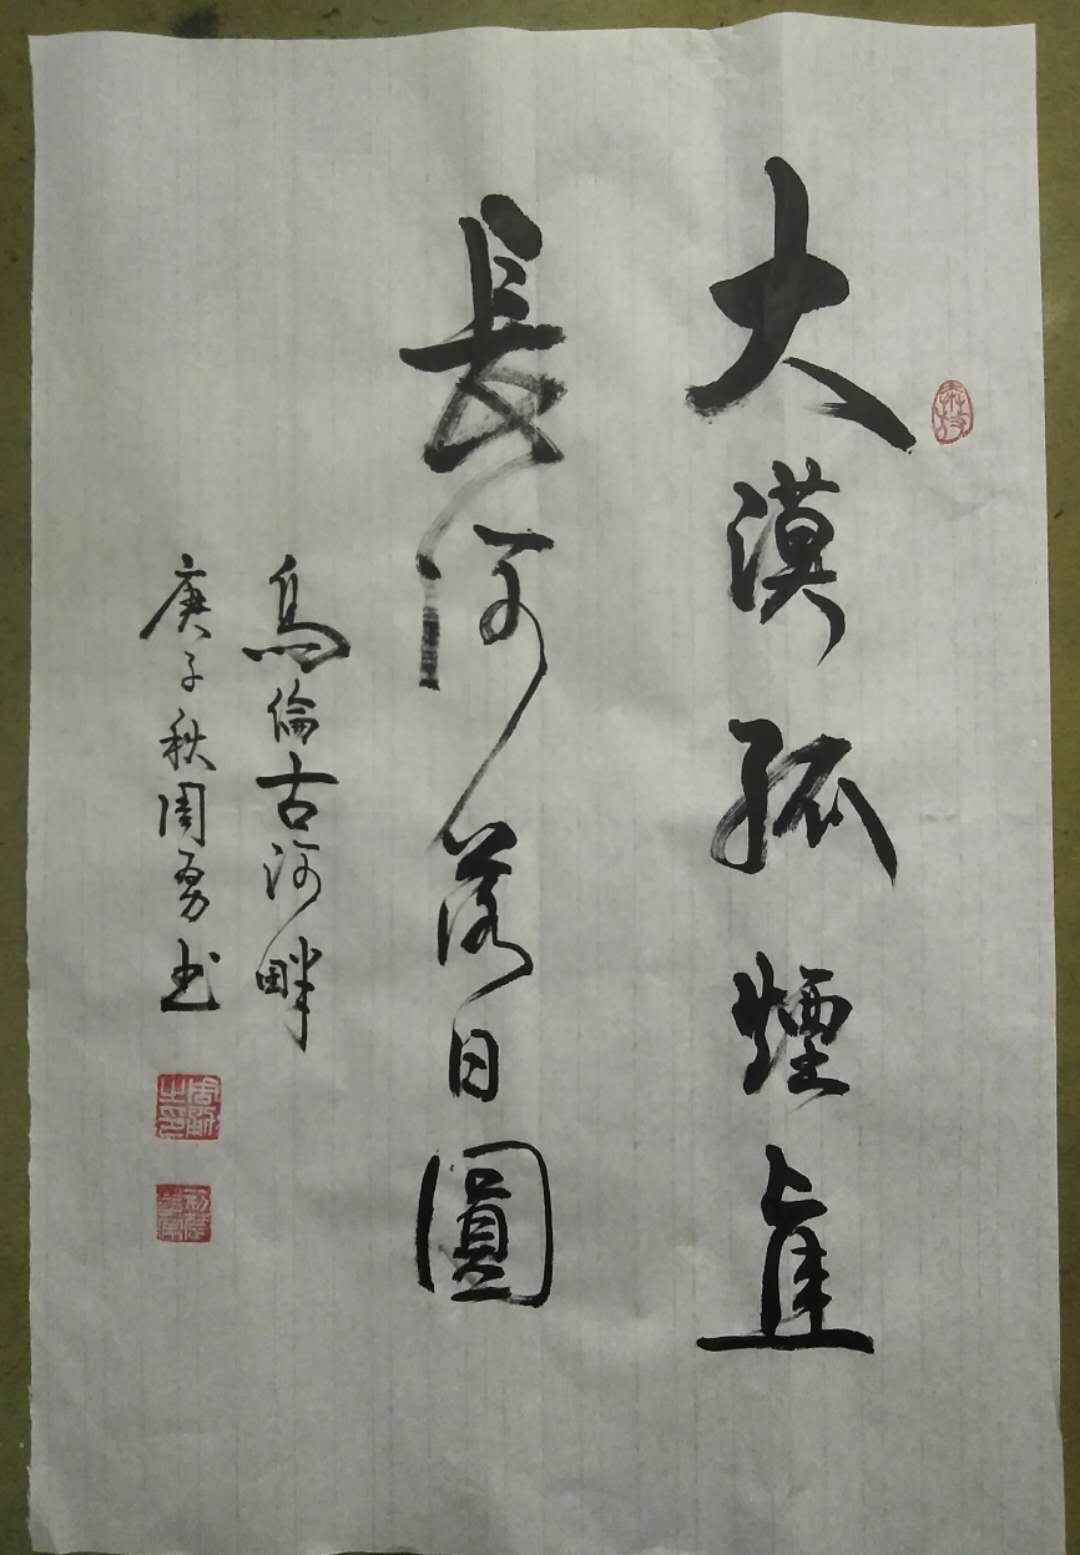 大漠孤煙直
長河落日圓
烏倫古河畔
庚子秋周勇书